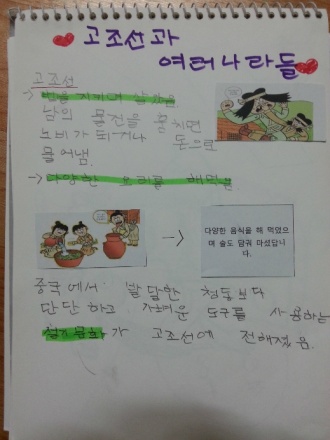 고조선과
여러나라들
고조선
→ 법을 지키며 살았음
남의 물건을 훔치면
노비가 되거나 돈으로
물어냄.
→ 다양한 요리를 해먹음
→
다양한 음식을 해 먹었으
며 술도 담궈 마셨답니
다.
중국에서 발달한 청동보다
단단하고 가벼운 도구를 사용하는
철기문화가 고조선에 전해졌음.